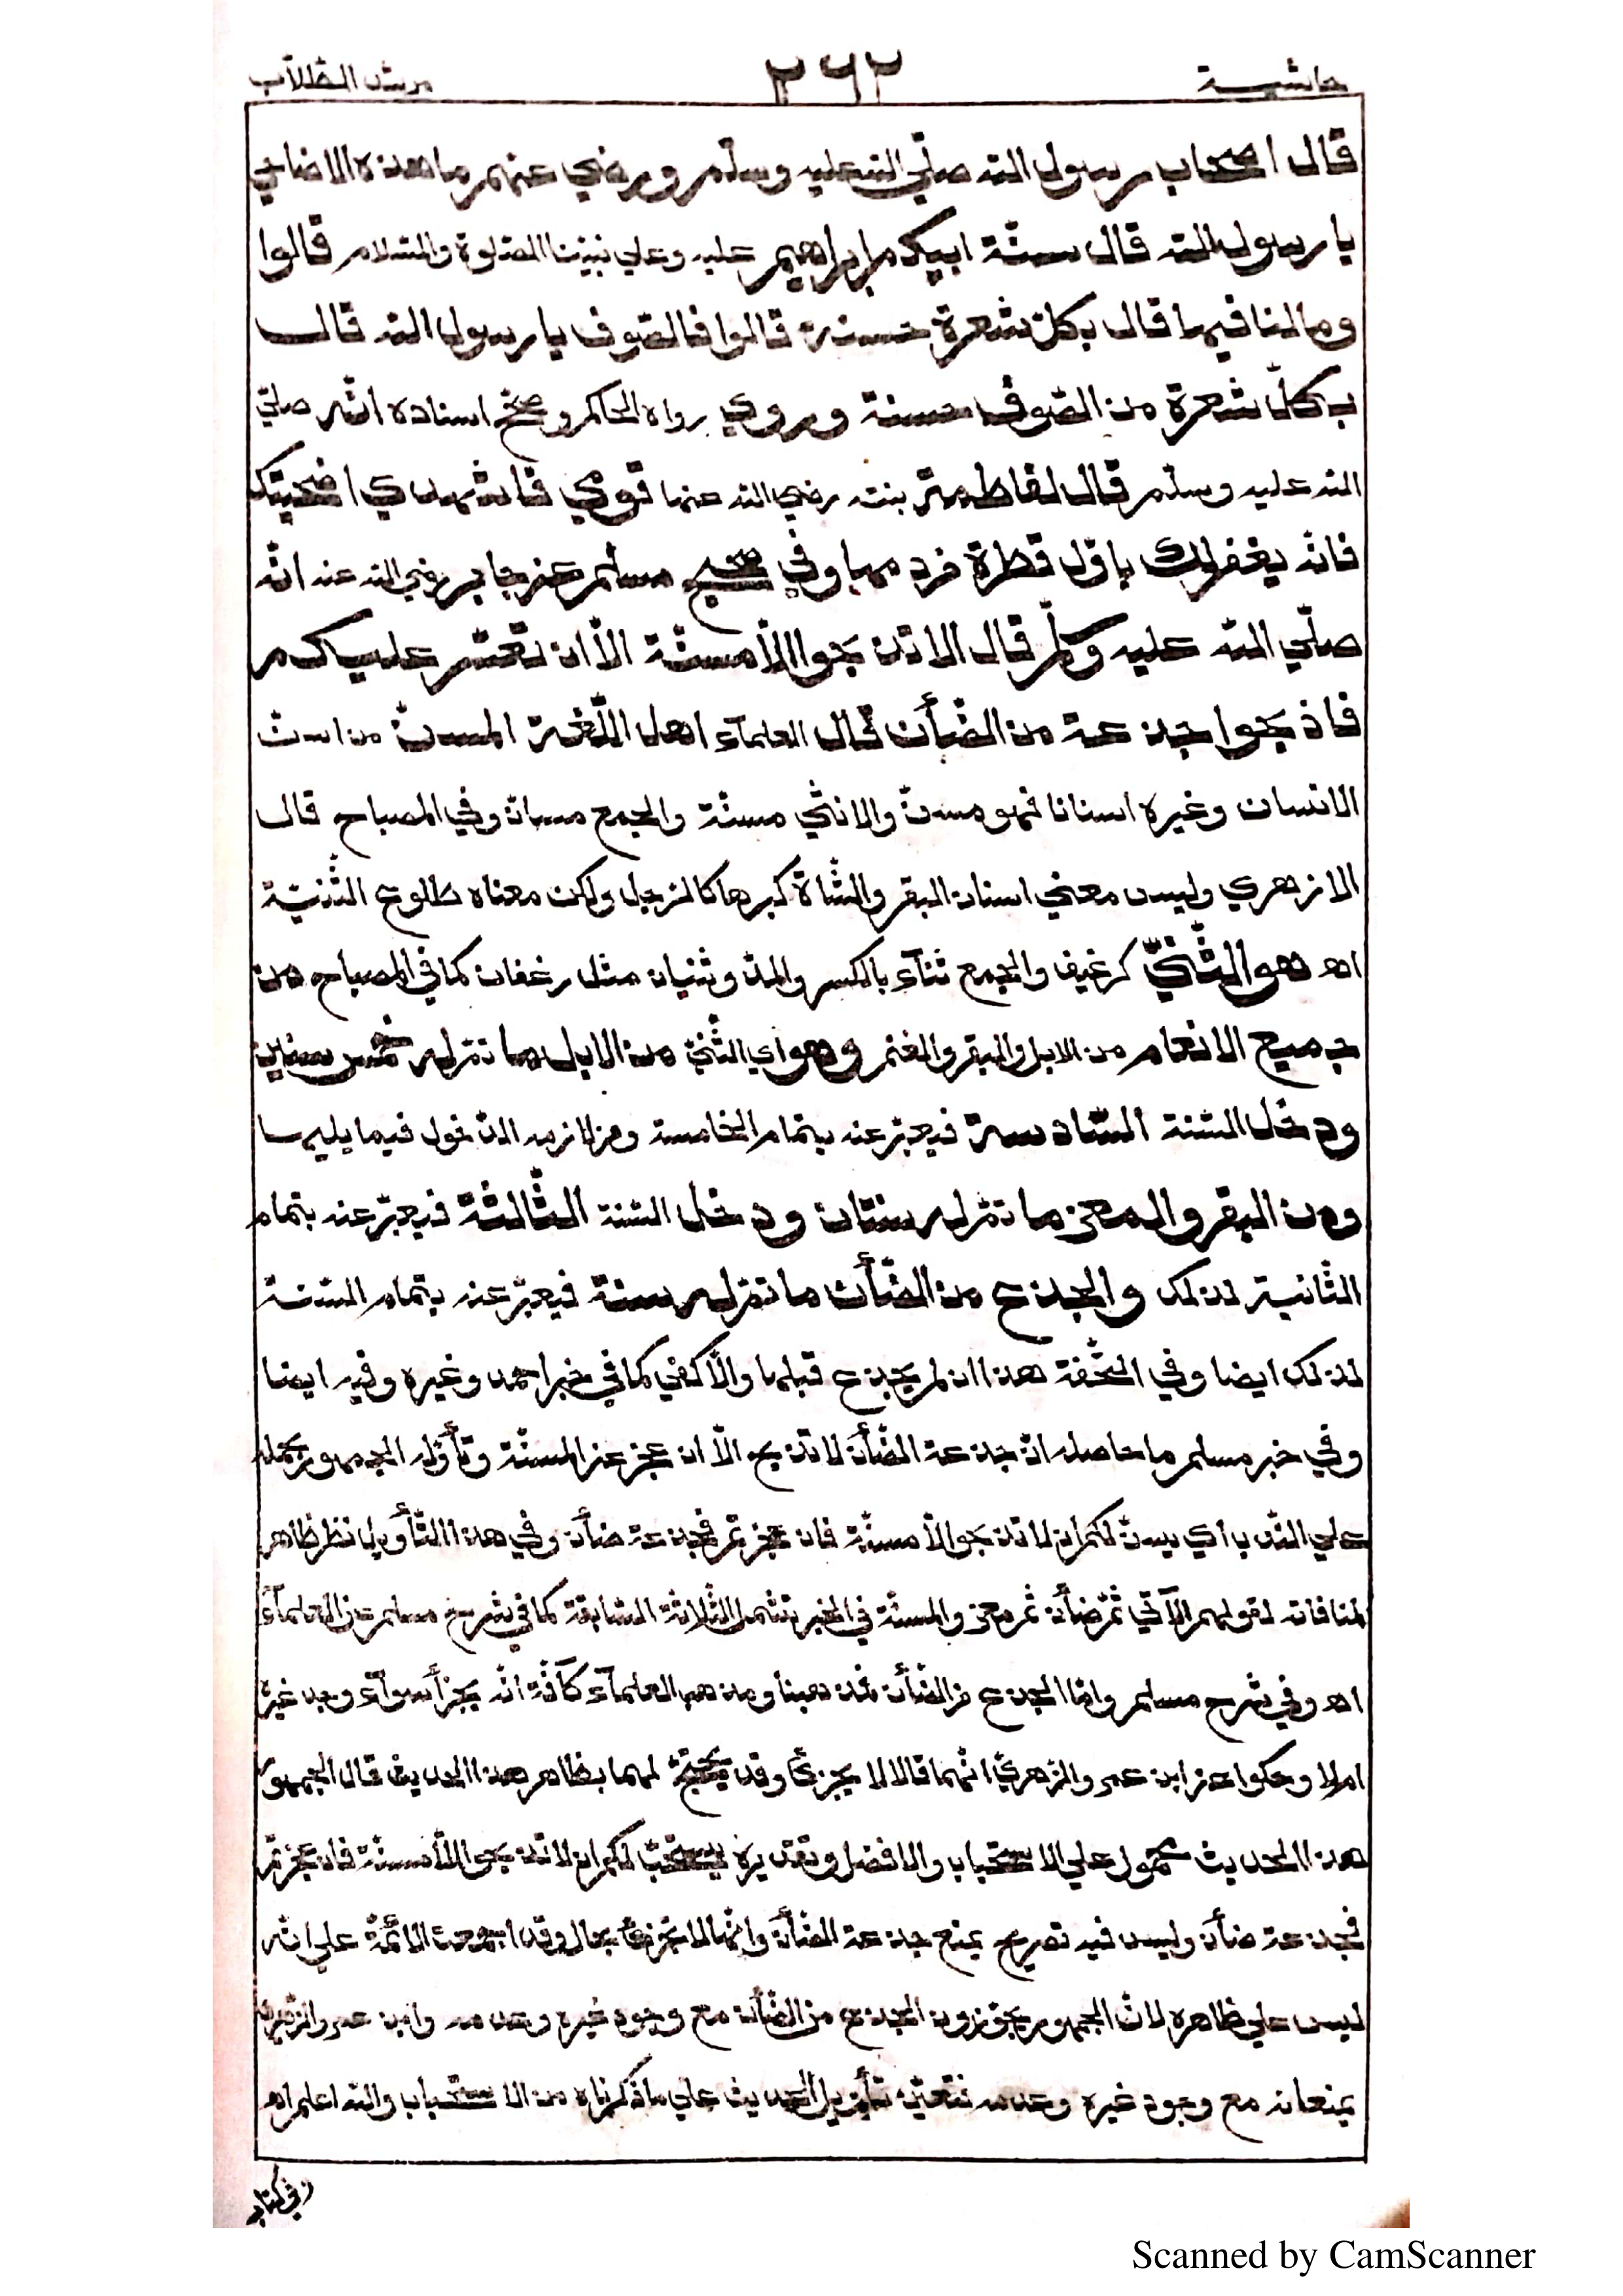 حاشية ٢٦٢ مرشد الطلاب
قال اصحاب رسول الله صلّي الله عليه وسلّم ورضي عنهم ما هذه الاضاحي
يا رسول الله قال سنّة ابيكم ابراهيم عليه وعلي نبيّنا الصّلوة والسّلام قالوا
وما لنا فيها قال بكلّ شعرة حسنة قالوا فالصّوف يا رسول الله قال
بكلّ شعرة من الصّوف حسنة وروي رواه الحاكم وصحّح اسناده انّه صلّي
الله عليه وسلّم قال لفاطمة بنته رضي الله عنها قومي فاشهدي اضحيتك
فانّه يغفر لك باوّل قطرة من دمها وفي صحيح مسلم عن جابر رضي الله عنه انّه
صلّي الله عليه وسلّم قال لا تذبحوا الاّ مسنّة الاّ ان تعسّر عليكم
فاذبحوا جذعة من الضّأن قال العلمآء اهل اللّغة المسنّ من اسنّ
الانسان وغيره اسنانا فهو مسنّ والانثي مسنّة والجمع مسانّ وفي المصباح قال
الازهري وليس معني اسنان البقر والشّاة كبرها كالرّجل ولكن معناه طلوع الثّنيّة
اهـ هو الثّنيّ كرغيف والجمع ثنآء بالكسر والمدّ وثنيان مثل رغفان كما في المصباح من
جميع الانعام من الابل والبقر والغنم وهو اي الثّنيّ من الابل ما تمّ له خمس سنين
ودخل السّنة السّادسة فيعبّر عنه بتمام الخامسة ومن لازمه الدّخول فيما يليها
ومن البقر والمعز ما تمّ له سنتان ودخل السّنة الثّالثة فيعبّر عنه بتمام
الثّانية لذلك والجذع من الضّأن ما تمّ له سنة فيعبّر عنه بتمام السّنة
لذلك ايضا وفي التّحفة هذا ان لم يجذع قبلها والاّ كفي كما في خبر احمد وغيره وفيه ايضا
وفي خبر مسلم ما حاصله انّ جذعة الضّأن لا تذبح الاّ ان عجز عن المسنّة وتأوّله الجمهور بحمله
علي النّدب اي يسنّ لكم ان لا تذبحوا الاّ مسنّة فان عجزتم فجذعة ضأن وفي هذا التّأويل نظر ظاهر
لمنافاته لقولهم الآتي ثمّ ضأن ثمّ معز والمسنّة في الخبر تشمل الثّلاثة السّابقة كما في شرح مسلم عن العلمآء
اهـ وفي شرح مسلم وامّا الجذع من الضّأن فمذهبنا ومذهب العلمآء كآفّة انّه يجزأ سوآء وجد غيره
ام لا وحكوا عن ابن عمر والزّهريّ انّهما قالا لا يجزئ وقد يحتجّ لهما بظاهر هذا الحديث قال الجمهور
هذا الحديث محمول علي الاستحباب والافضل وتقديره يستحبّ لكم ان لا تذبحوا الاّ مسنّة فان عجزتم
فجذعة ضأن وليس فيه تصريح بمنع جذعة الضّأن وانّها لا تجزئ بحال وقد اجمعت الائمّة علي انّه
ليس علي ظاهره لانّ الجمهور يجوّزون الجذع من الضّأن مع وجود غيره وعدمه وابن عمر والزّهري
يمنعانه مع وجود غيره وعدمه فتعيّن تأويل الحديث علي ما ذكرناه من الاستحباب والله اعلم اهـ
Scanned by CamScanner